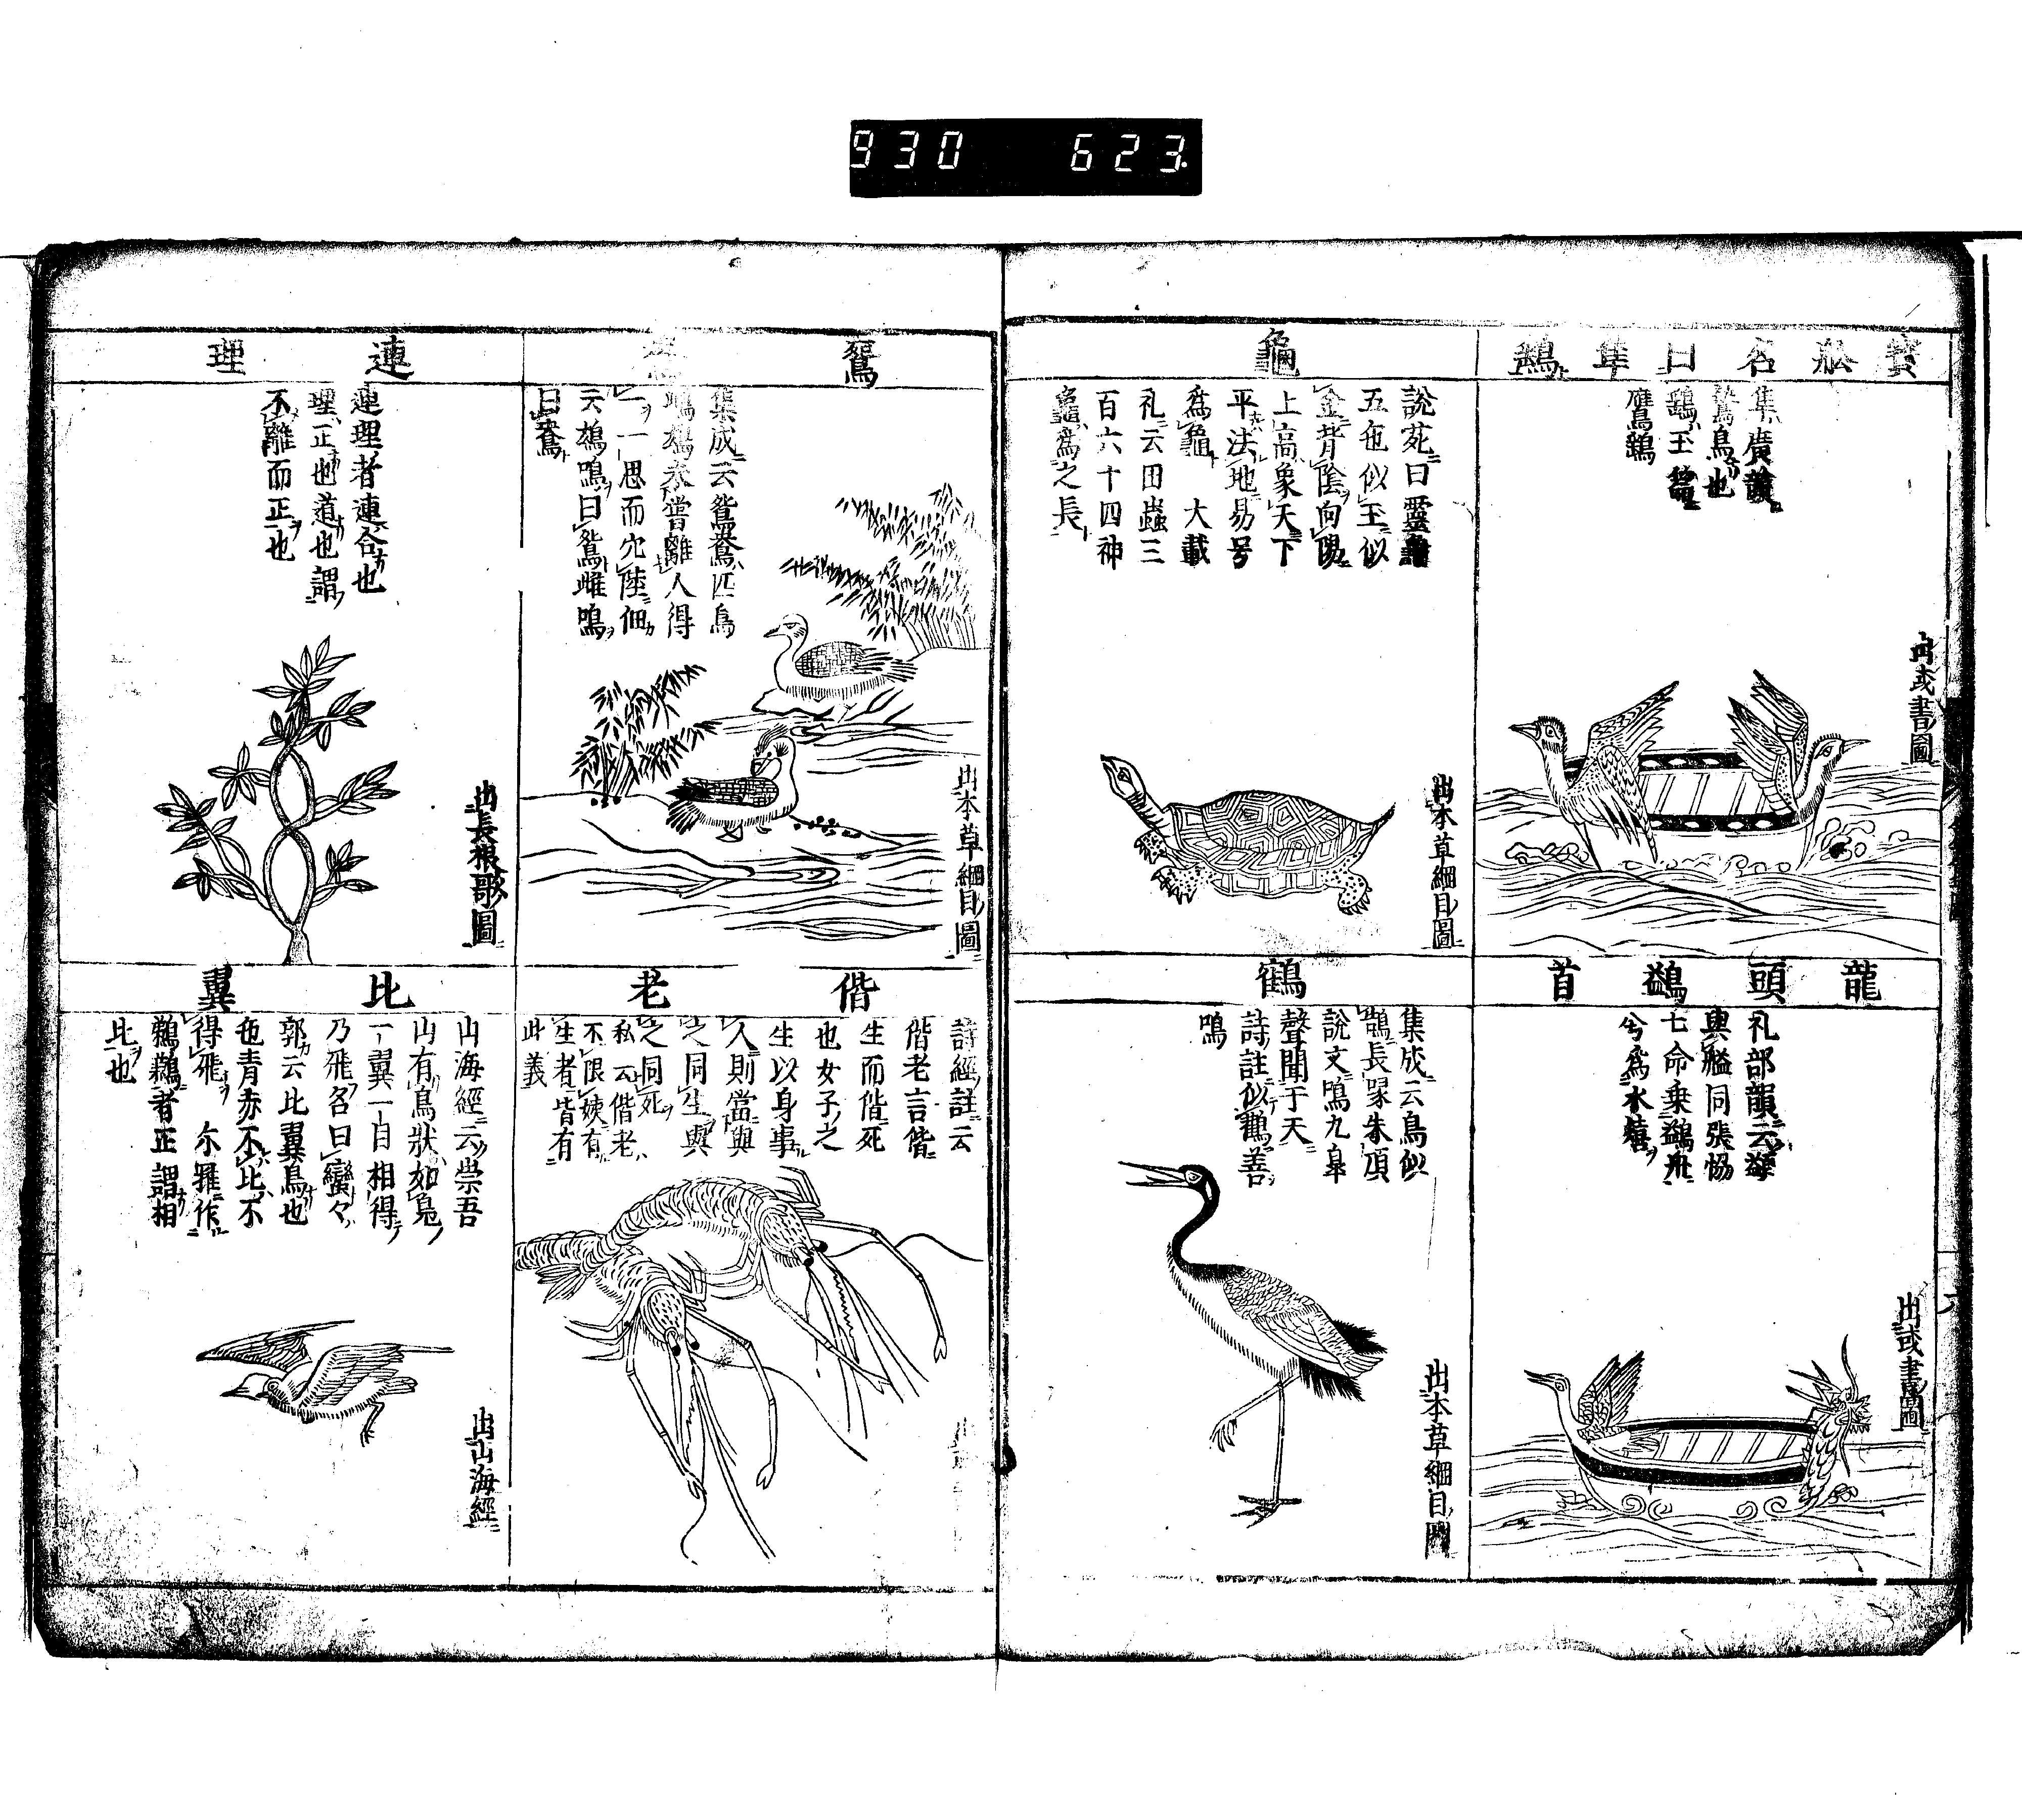 930 623
集廣韻
鳥也
鷹鷂
出或書圖
龜
說苑曰靈龜
五色似玉似
金背陰向陽
上高象天下
平法地易号
爲龜 大載
礼云田蟲三
百六十四神
龜爲之長
出本草綱目圖
龍頭鷁首
礼部韻云鷁
與艗同張恊
七命乗鷁舟
兮爲水嬉
出或書圖
鶴
集成云鳥似
鵠長喙朱頂
說文鳴九皐
聲聞于天
詩註似鸛善
鳴
出本草綱目圖
鴛
集成云鴛鴦匹鳥
雌雄未嘗離人得
一一思而死陸佃
云雄鳴曰鴛雌鳴
曰鴦
出本草綱目圖
連理
連理者連合也
理正也道也謂
不離而正也
出長恨歌圖
偕老
詩經註云
偕老言偕
生而偕死
也女子之
生以身事
人則當與
之同生與
之同死
私云偕老
不限姨有
生者皆有
此義
比翼
山海經云崇吾
山有鳥狀如鳬
一翼一目相得
乃飛名曰蠻々
郭云比翼鳥也
色青赤不比不
得飛 尓雅作
鶼鶼者正謂相
比也
出山海經